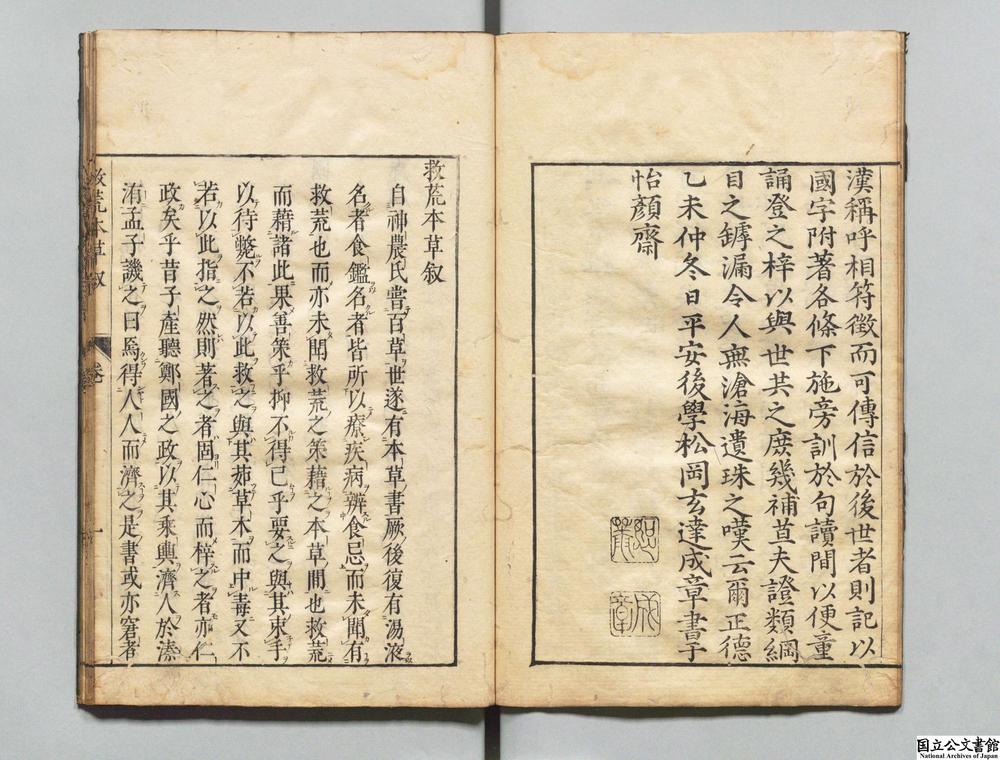 漢稱呼相符徵而可傳信於後世者則記以
國字附著各條下施旁訓於句讀間以便童
誦登之梓以與世共之庶幾補苴夫證類綱
目之罅漏令人無滄海遺珠之嘆云爾正德
乙未仲冬日平安後學松岡玄達成章書于
怡顏齋
成章
救荒本草叙
自神農氏嘗百草世遂有本草書厥後復有湯液
名者食鑑名者皆所以療疾病辨食忌而未聞有
救荒也而亦未聞救荒之策藉之本草間也救荒
而藉諸此果善策乎抑不得已乎要之與其束手
以待斃不若以此救之與其茹草木而中毒又不
若以此指之然則著之者固仁心而梓之者亦仁
政矣乎昔子產聽鄭國之政以其乘輿濟人於溱
洧孟子譏之曰焉得人人而濟之是書或亦窘者
救荒本草叙
卷
一
国立公文書館
National Archives of Japan